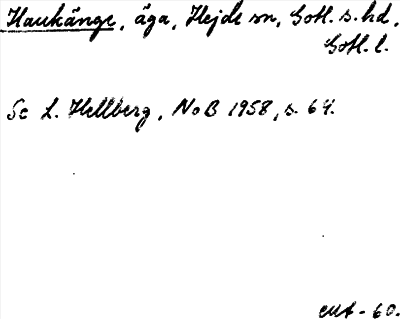 Haukänge, äga, Hejde sn, Gotl. s. hd,
Gotl. l.
Se L. Hellberg, NoB 1958, s. 64.